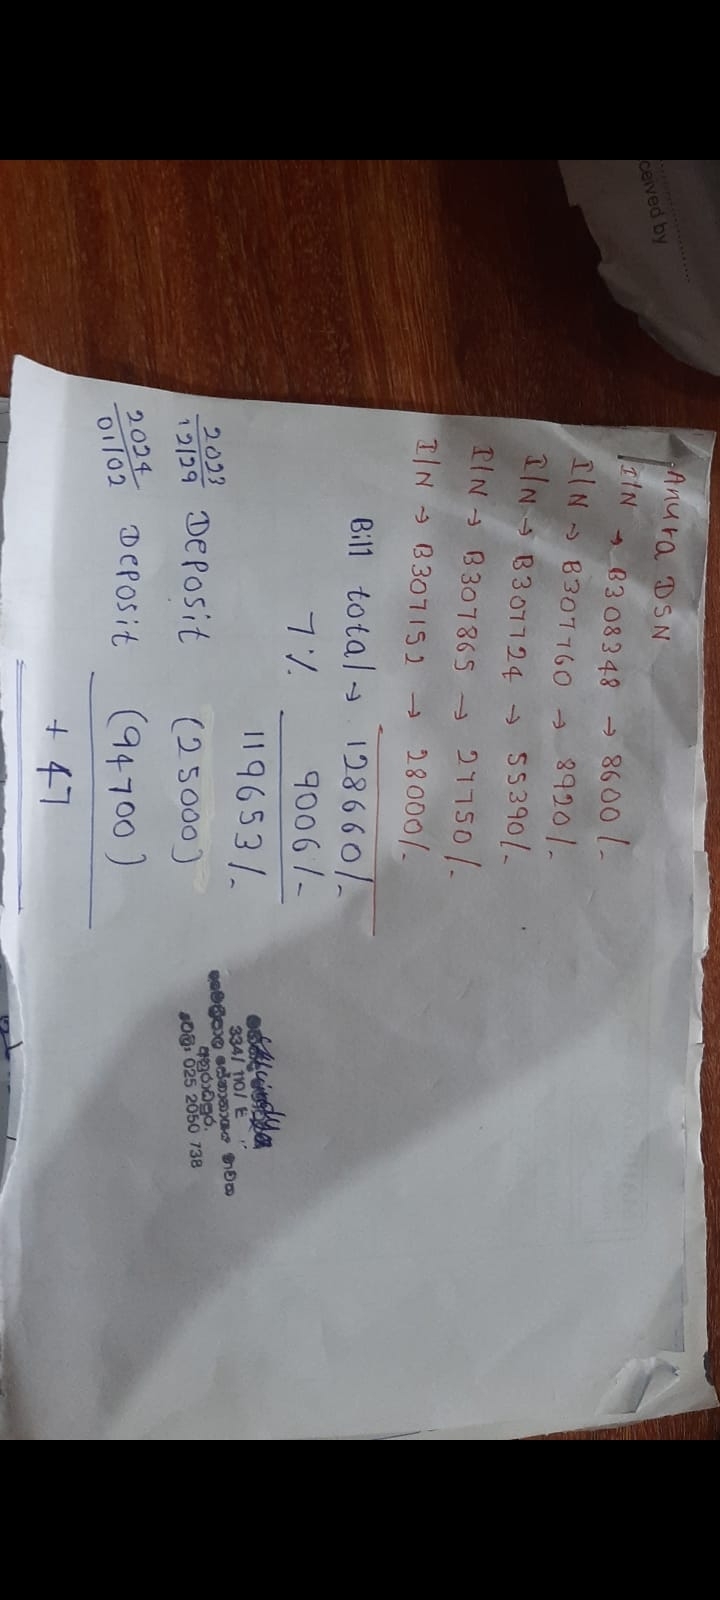 ceived by
Anura DSN
I/N → B308348 → 8600/-
I/N → B307760 → 8920/-
I/N → B307724 → 55390/-
I/N → B307865 → 27750/-
I/N → B307152 → 28000/-
Bill total → 128660/-
7% 9006/-
119653/-
2023
12/29 Deposit (25000)
2024
01/02 Deposit (94700)
+ 47
334/ 110/ E
අනුරාධපුර.
025 2050 738